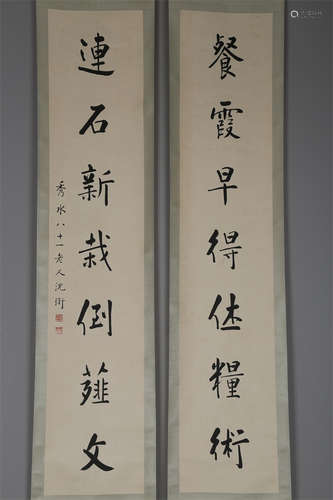 餐霞早得休糧術
連石新栽倒薤文
秀水八十一老人沈衛